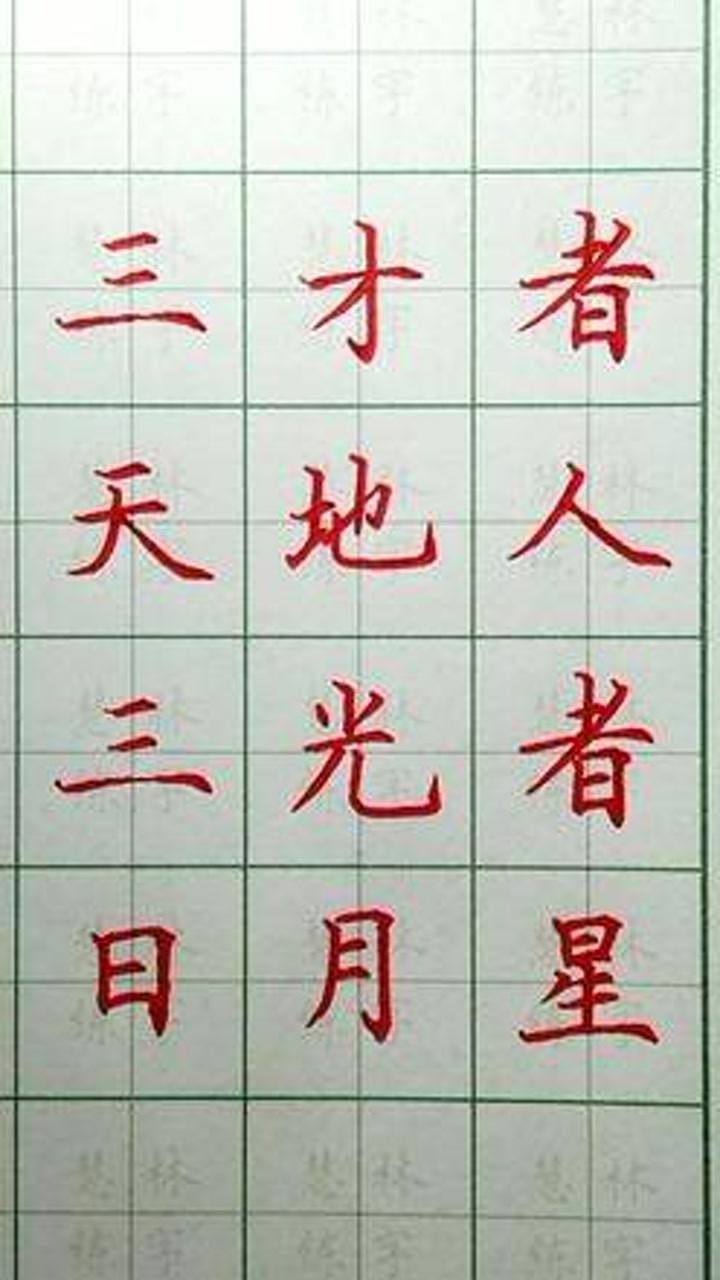 三才者
天地人
三光者
日月星